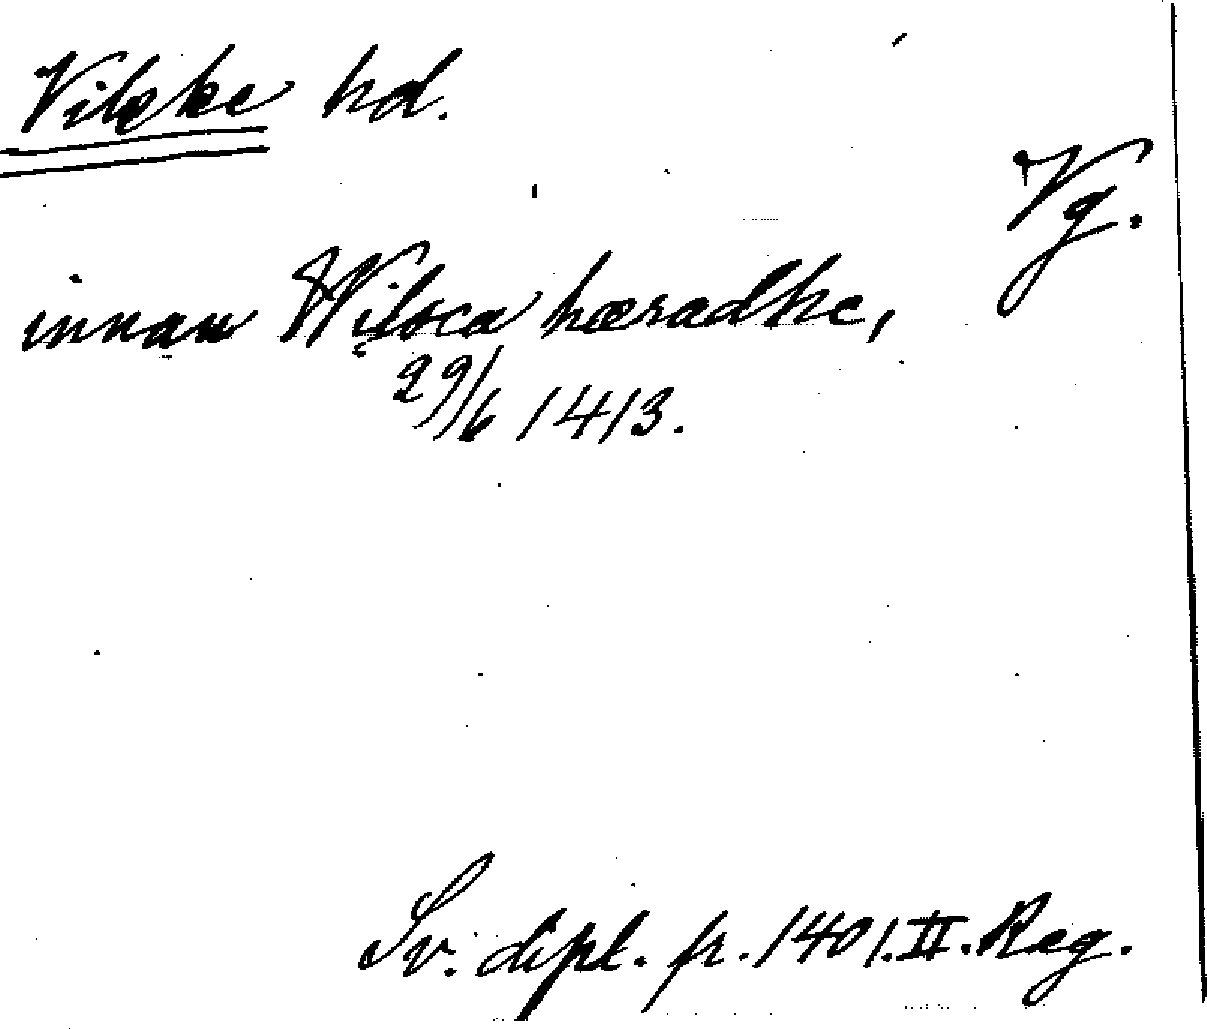 Vilske hd.
Vg.
innan Wilsca hæradhe,
29/6 1413.
Sv. dipl. fr. 1401. II. Reg.